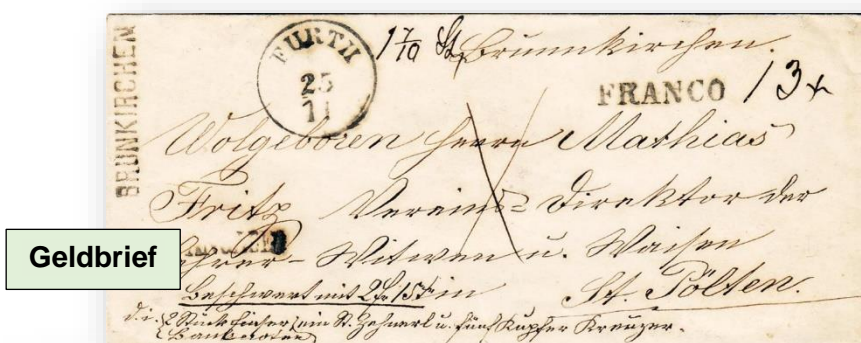 BRUNKIRCHEN
FURTH
25
11
1 7/10 Brunnkirchen.
FRANCO 13x
Wolgeboren Herrn Mathias
Fritz Vereins-Direktor der
Lehrer-Witwen u. Waisen
Geldbrief
Beschwert mit 2f 15x in St. Pölten.
d. i. 2 Stück Einser ein St. Zehnerl u. fünf Kupfer Kreuzer.
Banknoten